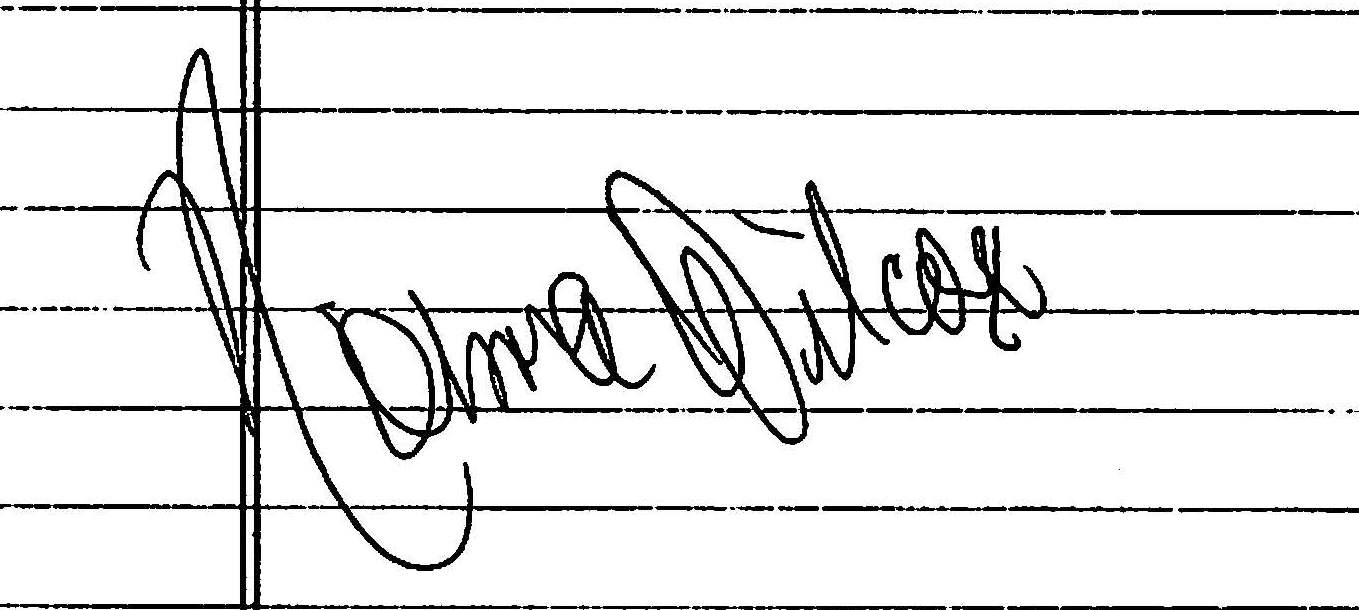 Norma Wilcox